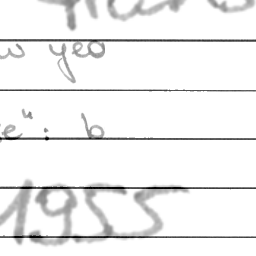 yeo
e": b
1955